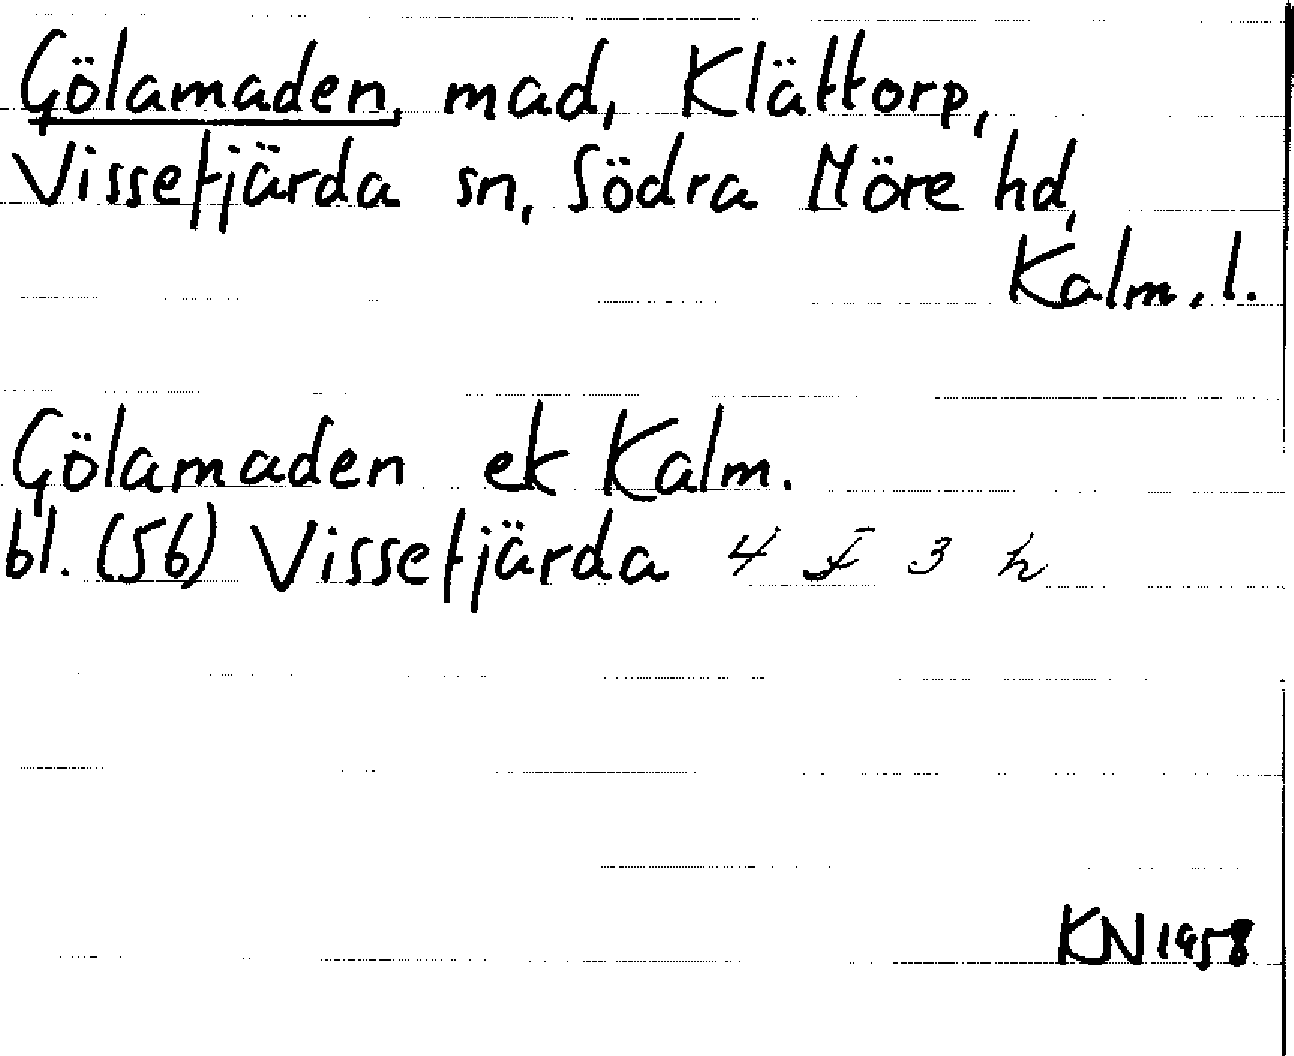 Gölamaden, mad, Klättorp,
Vissefjärda sn, Södra Möre hd,
Kalm. l.
Gölamaden ek Kalm.
bl. (56) Vissefjärda 4 F 3 h
KN 1958